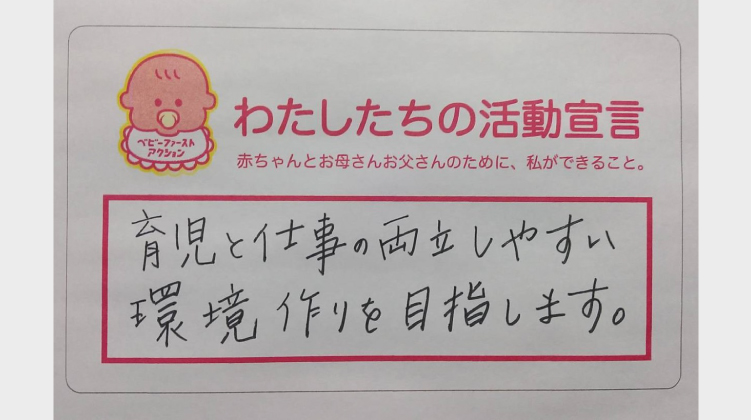 ベビーファースト
アクション
わたしたちの活動宣言
赤ちゃんとお母さんお父さんのために、私ができること。
育児と仕事の両立しやすい
環境作りを目指します。